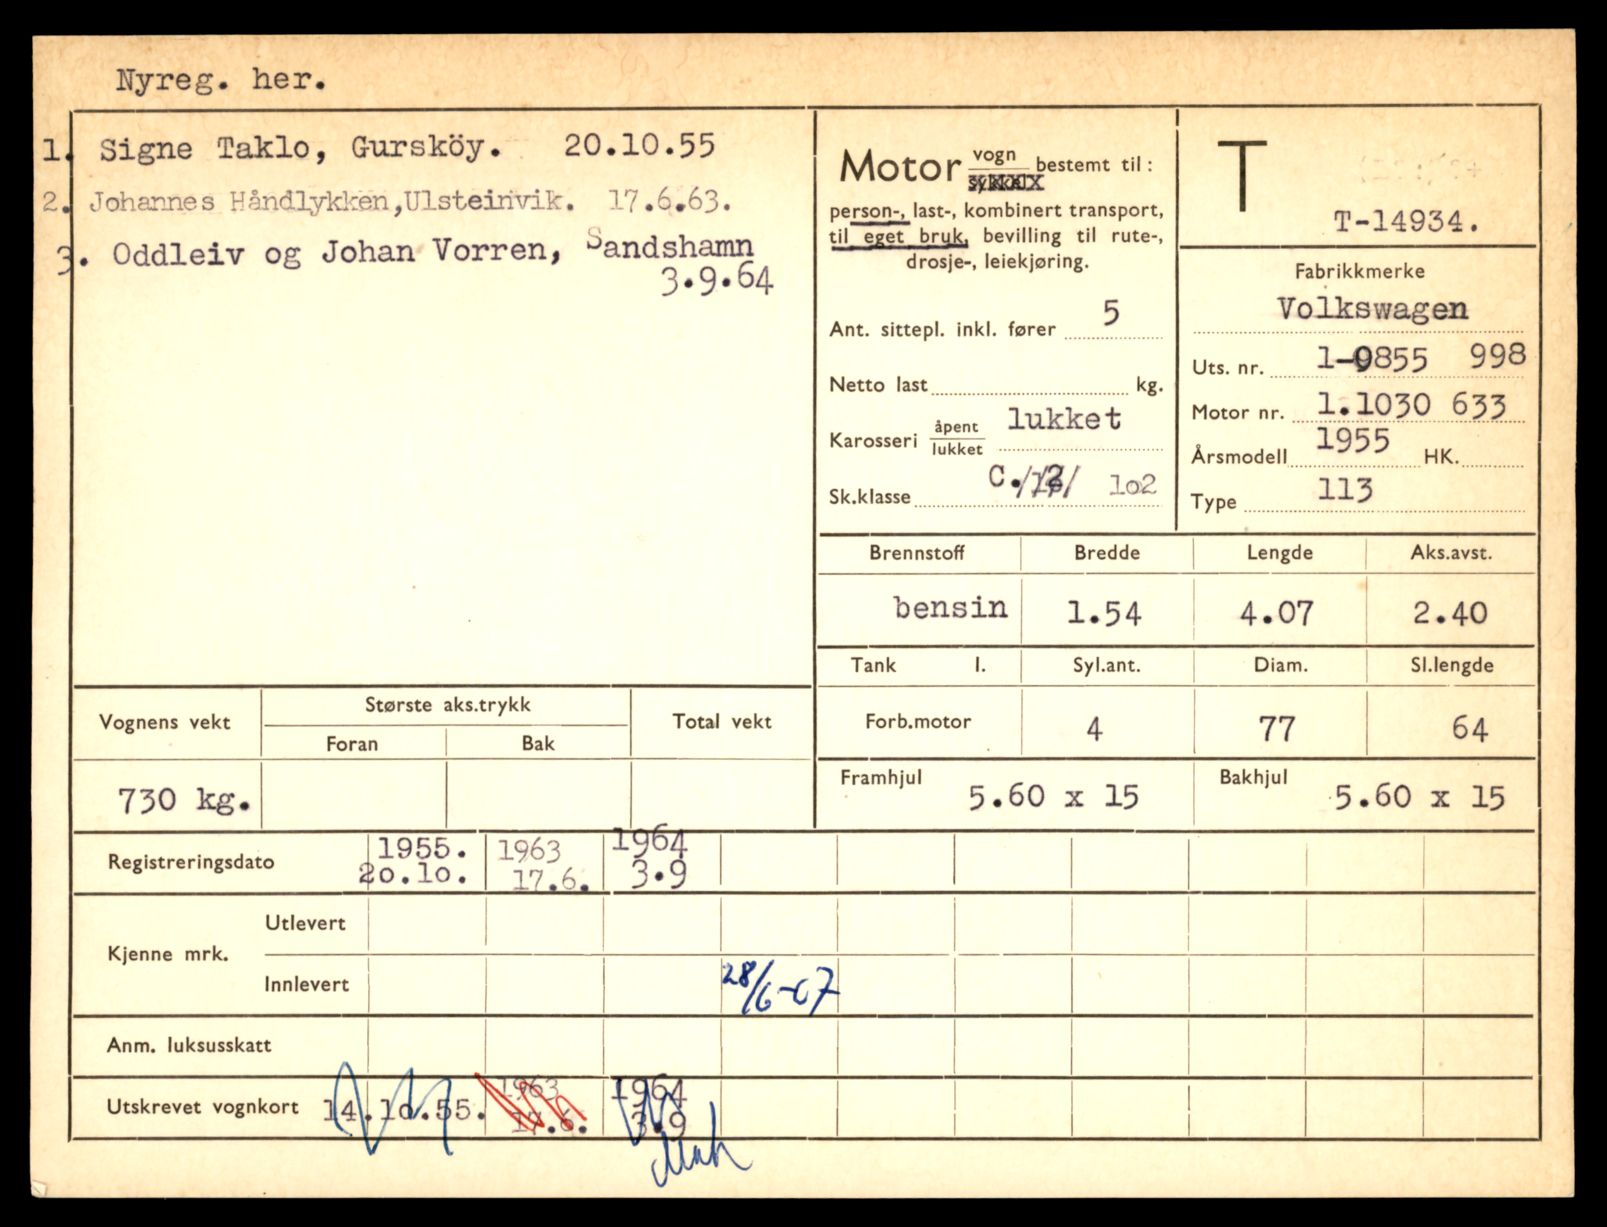 Nyreg. her.
1. Signe Taklo, Gursköy. 20.10.55
2. Johannes Håndlykken,Ulsteinvik. 17.6.63.
3. Oddleiv og Johan Vorren, Sandshamn
3.9.64
Motor vogn bestemt til :
sykkel
person-, last-, kombinert transport,
til eget bruk, bevilling til rute-,
drosje-, leiekjøring.
Ant. sittepl. inkl. fører 5
Netto last kg.
Karosseri åpent lukket
lukket
Sk.klasse C. 1o2
T
T-14934.
Fabrikkmerke
Volkswagen
Uts. nr. 1-0855 998
Motor nr. 1.1030 633
Årsmodell 1955 HK.
Type 113
Brennstoff Bredde Lengde Aks.avst.
bensin 1.54 4.07 2.40
Tank l. Syl.ant. Diam. Sl.lengde
Forb.motor 4 77 64
Framhjul 5.60 x 15 Bakhjul 5.60 x 15
Vognens vekt Største aks.trykk Total vekt
Foran Bak
730 kg.
Registreringsdato 1955. 1963 1964
2o.1o. 17.6. 3.9
Kjenne mrk. Utlevert
Innlevert 28/6-67
Anm. luksusskatt
1963 1964
Utskrevet vognkort 14.1o.55. 17.6. 3.9